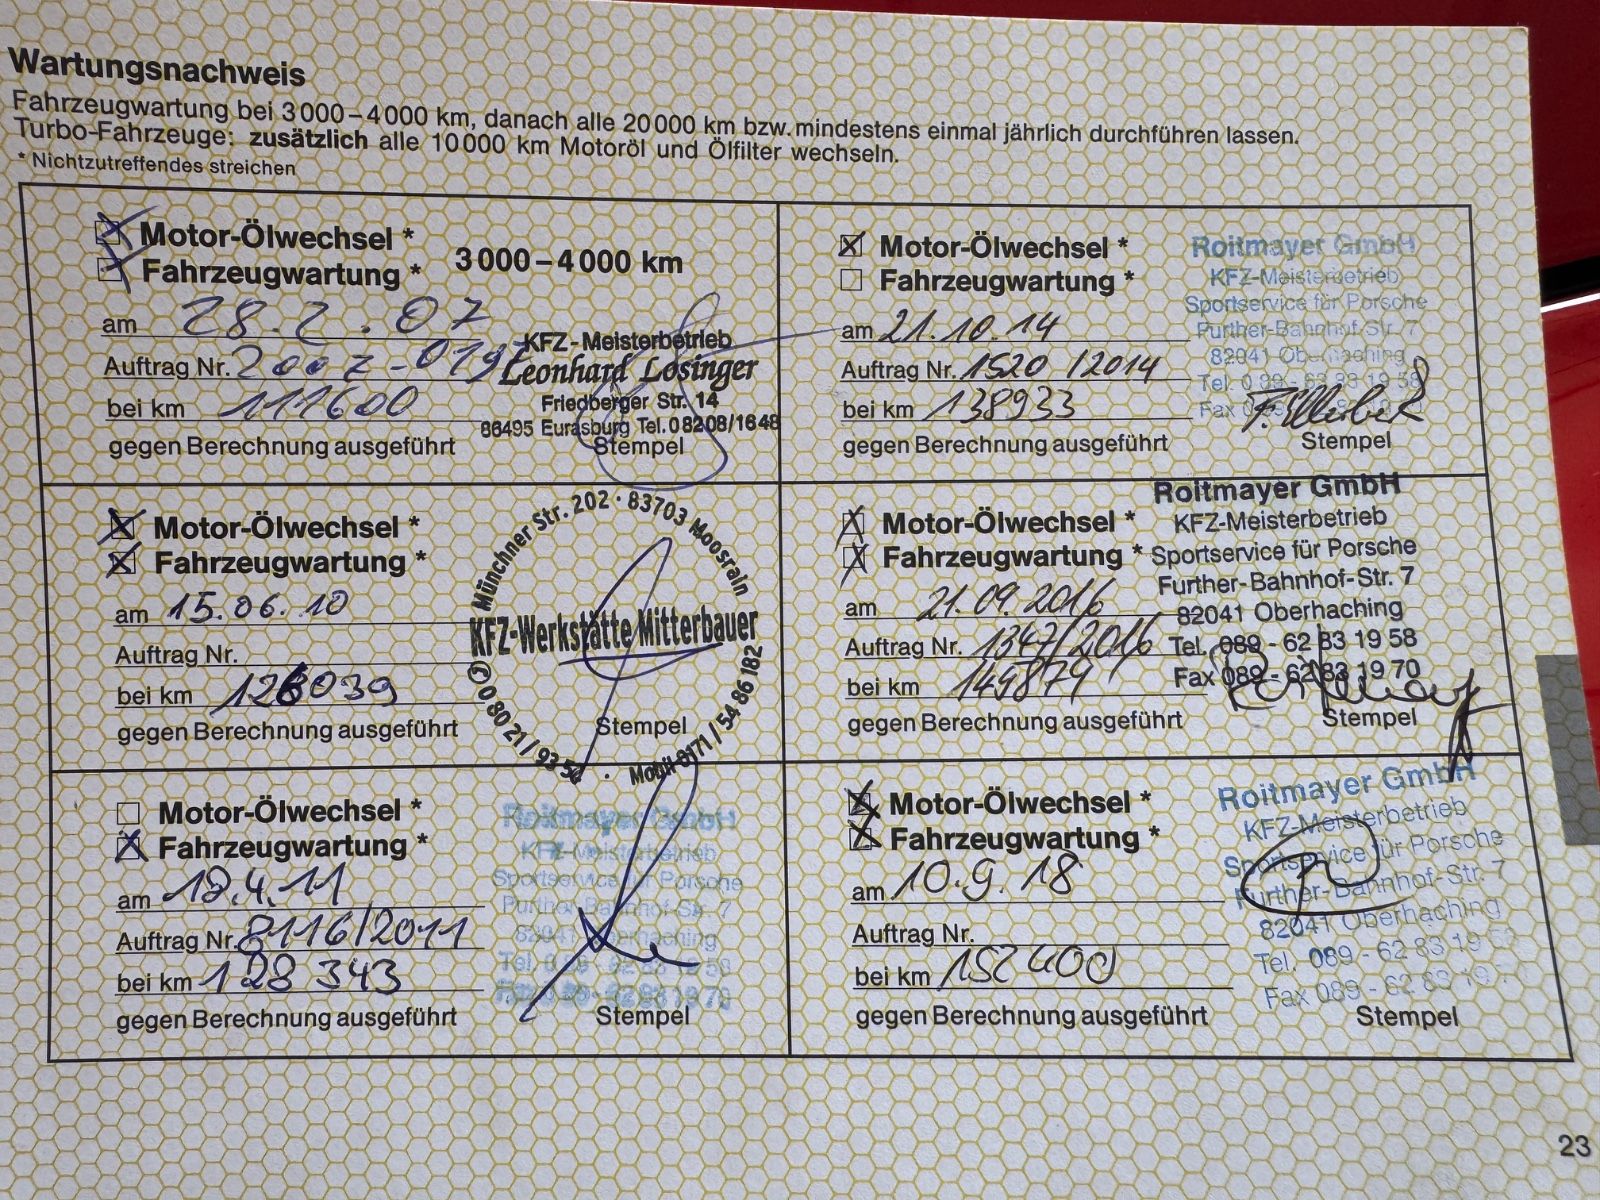 Wartungsnachweis
Fahrzeugwartung bei 3000–4000 km, danach alle 20000 km bzw. mindestens einmal jährlich durchführen lassen.
Turbo-Fahrzeuge: zusätzlich alle 10000 km Motoröl und Ölfilter wechseln.
* Nichtzutreffendes streichen
Motor-Ölwechsel *
Fahrzeugwartung *
3000–4000 km
am 28.2.07
Auftrag Nr. 2007-019
bei km 111600
gegen Berechnung ausgeführt
KFZ-Meisterbetrieb
Leonhard Losinger
Friedberger Str. 14
86495 Eurasburg Tel. 08208/1648
Stempel
Motor-Ölwechsel *
Fahrzeugwartung *
am 21.10.14
Auftrag Nr. 1520/2014
bei km 138933
gegen Berechnung ausgeführt
Roitmayer GmbH
KFZ-Meisterbetrieb
Sportservice für Porsche
Further-Bahnhof-Str. 7
82041 Oberhaching
Tel. 089-62 83 19 58
Fax
Stempel
Motor-Ölwechsel *
Fahrzeugwartung *
am 15.06.10
Auftrag Nr.
bei km 126039
gegen Berechnung ausgeführt
Münchner Str. 202 · 83703 Moosrain
KFZ-Werkstätte Mitterbauer
Mobil 0171/54 86 182
Stempel
Motor-Ölwechsel *
Fahrzeugwartung *
am 21.09.2016
Auftrag Nr. 1347/2016
bei km 149874
gegen Berechnung ausgeführt
Roitmayer GmbH
KFZ-Meisterbetrieb
Sportservice für Porsche
Further-Bahnhof-Str. 7
82041 Oberhaching
Tel. 089 - 62 83 19 58
Fax 089 - 62 83 19 70
Stempel
Motor-Ölwechsel *
Fahrzeugwartung *
am 18.4.11
Auftrag Nr. 8116/2011
bei km 128 343
gegen Berechnung ausgeführt
Roitmayer GmbH
KFZ-Meisterbetrieb
Sportservice für Porsche
Further-Bahnhof-Str. 7
82041 Oberhaching
Tel. 089 - 62 83 19 58
Fax 089 - 62 83 19 70
Stempel
Motor-Ölwechsel *
Fahrzeugwartung *
am 10.9.18
Auftrag Nr.
bei km 152400
gegen Berechnung ausgeführt
Roitmayer GmbH
KFZ-Meisterbetrieb
Sportservice für Porsche
Further-Bahnhof-Str. 7
82041 Oberhaching
Tel. 089 - 62 83 19
Fax 089 - 62 83 19
Stempel
23